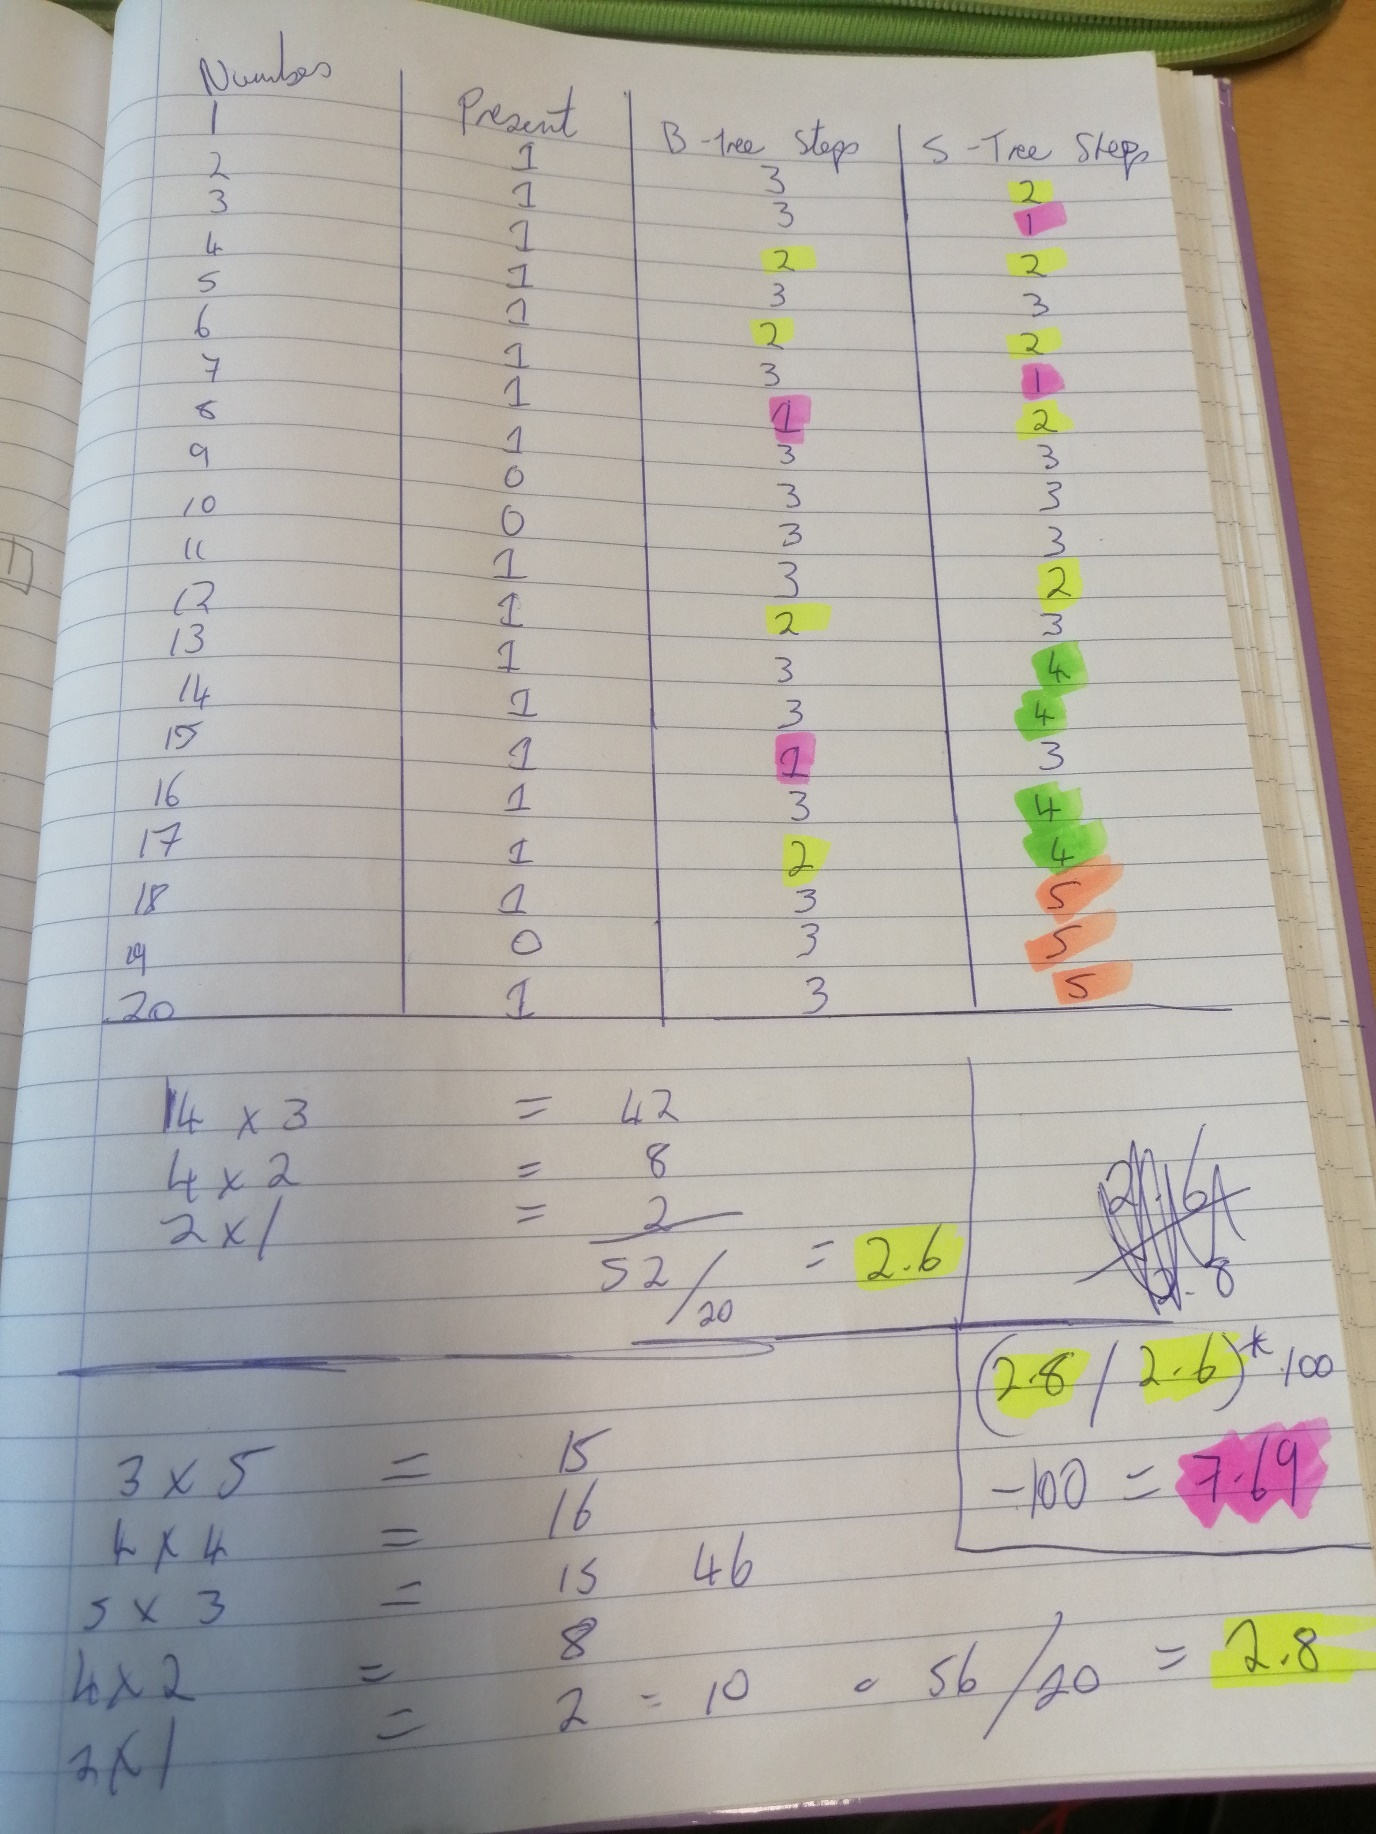 Number Present B-Tree Steps S-Tree Steps
1 1 3 2
2 1 3 1
3 1 2 2
4 1 3 3
5 1 2 2
6 1 3 1
7 1 1 2
8 1 3 3
9 0 3 3
10 0 3 3
11 1 3 2
12 1 2 3
13 1 3 4
14 1 3 4
15 1 1 3
16 1 3 4
17 1 2 4
18 1 3 5
19 0 3 5
20 1 3 5
14 x 3 = 42
4 x 2 = 8
2 x 1 = 2
52/20 = 2.6
2.8
(2.8 / 2.6) * 100
-100 = 7.69
3 x 5 = 15
4 x 4 = 16
5 x 3 = 15 46
4 x 2 = 8
2 x 1 = 2 = 10 = 56/20 = 2.8